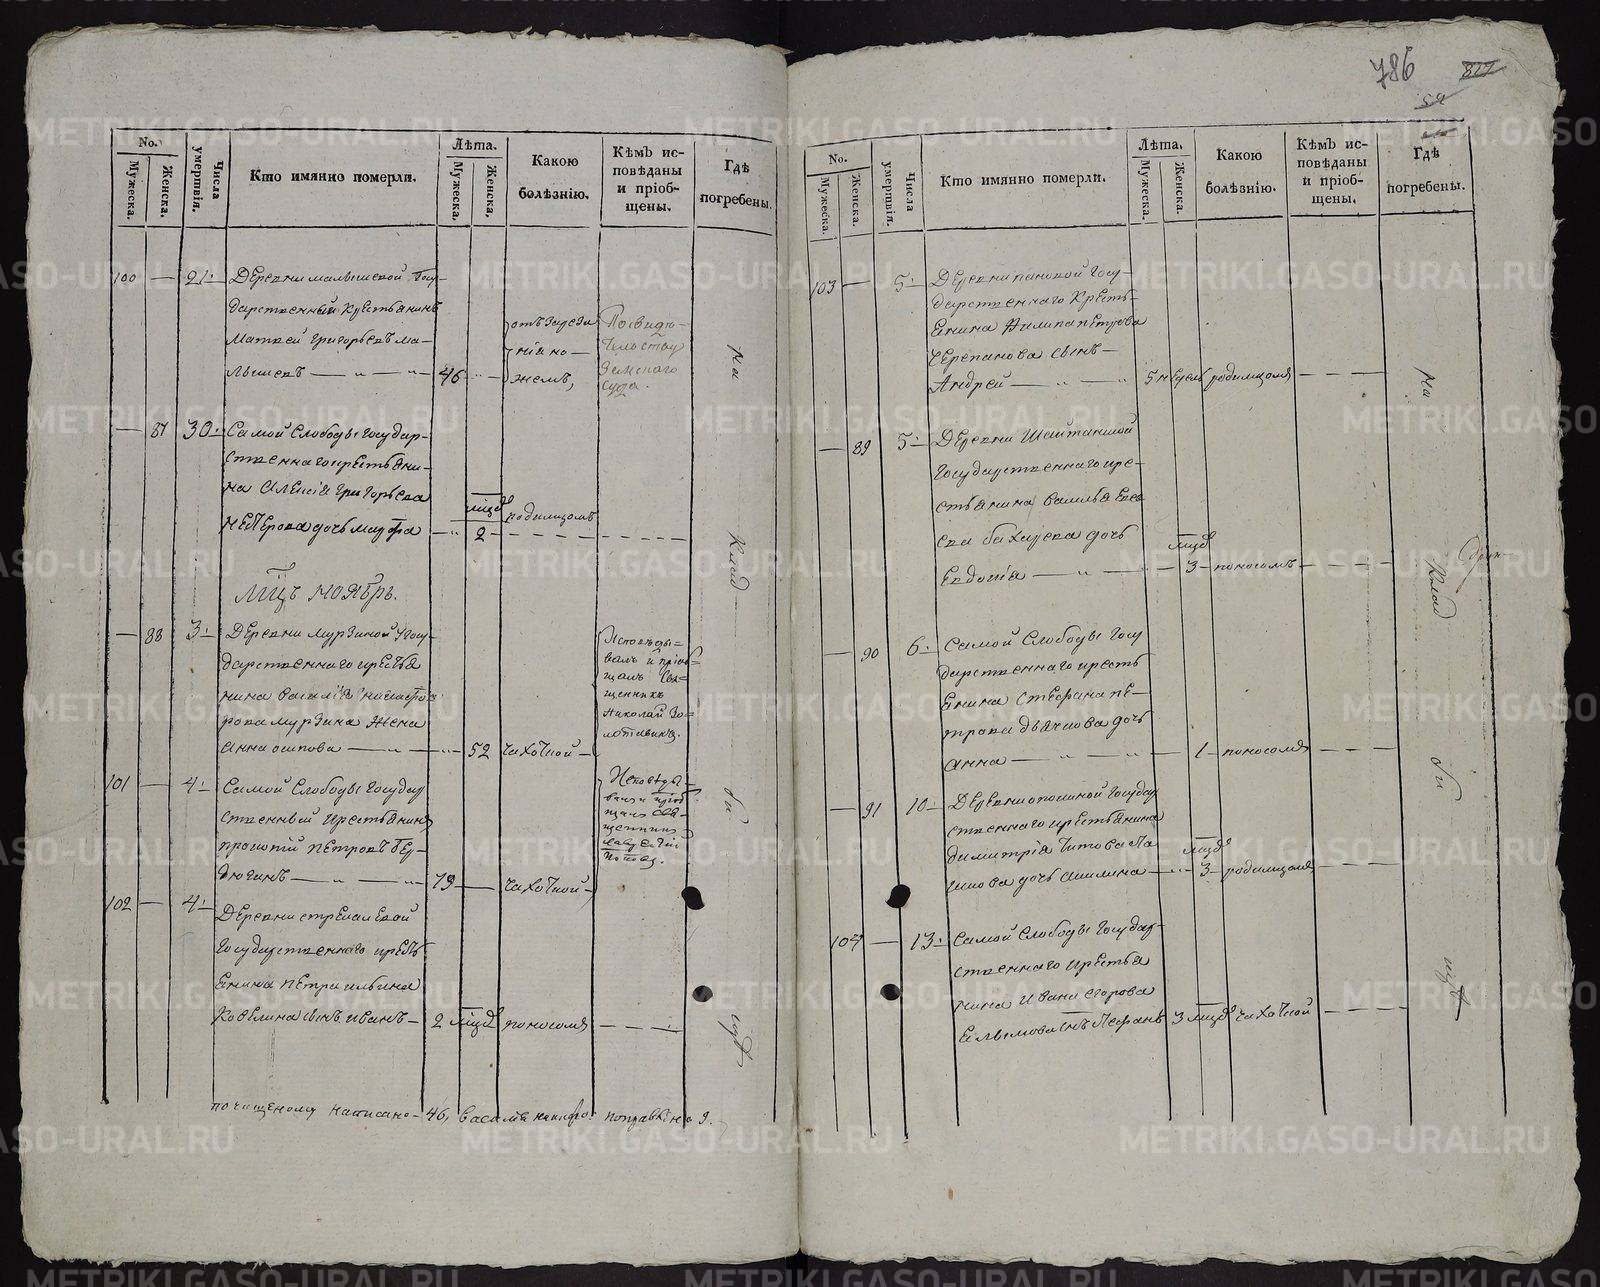 786
No.
Мужеска.
Женска.
Числа умертвія.
Кто имянно померли.
Лѣта.
Мужеска.
Женска.
Какою
болѣзнію.
Кѣмъ ис-
повѣданы
и пріоб-
щены.
Гдѣ
погребены.
100 — 21: Деревни малышевой Госу-
дарственный Крестьянинъ
Матвей Григорьевъ ма-
лышевъ — „ — 46
Посвидѣ-
тельству
Земского
Суда.
— 87 30: Самой Слободы Государ-
ственнаго крестьяни-
на Алексія Григорьева
дочь мавра — „ — мцов 2 родимцомъ
Мцъ ноябрь.
— 88 3: Деревни мурзиной Госу-
дарственнаго крестья
нина василія никифо
рова мурзина жена
Анна осипова — „ — „ — 52 чахоткой —
Исповѣды=
валъ и пріоб=
щалъ Свя=
щенникъ
Николай
101 — 4: Самой Слободы Государ
ственный крестьянинъ
прокопій петровъ Бер-
дюгинъ — „ — „ — 79 — чахоткой —
Исповѣды
валъ и пріоб
щалъ свя-
щенникъ
102 — 4: Деревни
Государственнаго кресть
янина петра ильина
Ковелина сынъ иванъ — 2 мцов поносомъ
На
Клад
би
щѣ
написано — 46, василія никифо: поправкѣ на 9.
No.
Мужеска.
Женска.
Числа умертвія.
Кто имянно померли.
Лѣта.
Мужеска.
Женска.
Какою
болѣзнію.
Кѣмъ ис-
повѣданы
и пріоб-
щены.
Гдѣ
погребены.
103 — 5: Деревни пановой Госу-
дарственнаго Кресть-
янина Филипа петрова
Черепанова сынъ —
Андрей — „ — „ 5 недель родимцомъ — — —
— 89 5: Деревни Шайтанской
Государственнаго кре-
стьянина василья
дочь
Евдокія — „ — — мцов 3 — поносомъ — — —
— 90 6: Самой Слободы Госу
дарственнаго кресть
янина Стефана пе-
трова дьячкова дочь
Анна — „ — „ — 1 — поносомъ — — —
— 91 10: Деревни Государ
ственнаго крестьянина
димитрія Титова
дочь — „ — мцов 3 — родимцомъ — — —
104 — 13: Самой Слободы Государ-
ственнаго крестья
нина Ивана егорова
3 мцов чахоткой — — —
На
Клад
би
щѣ